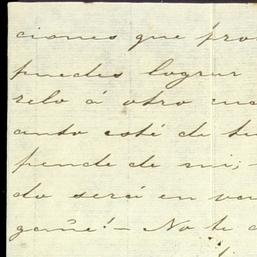 ciones que pro
puedes lograr
relo á otro cua
anto esté de tu
pende de mi;
do será en va
gañe! — No te